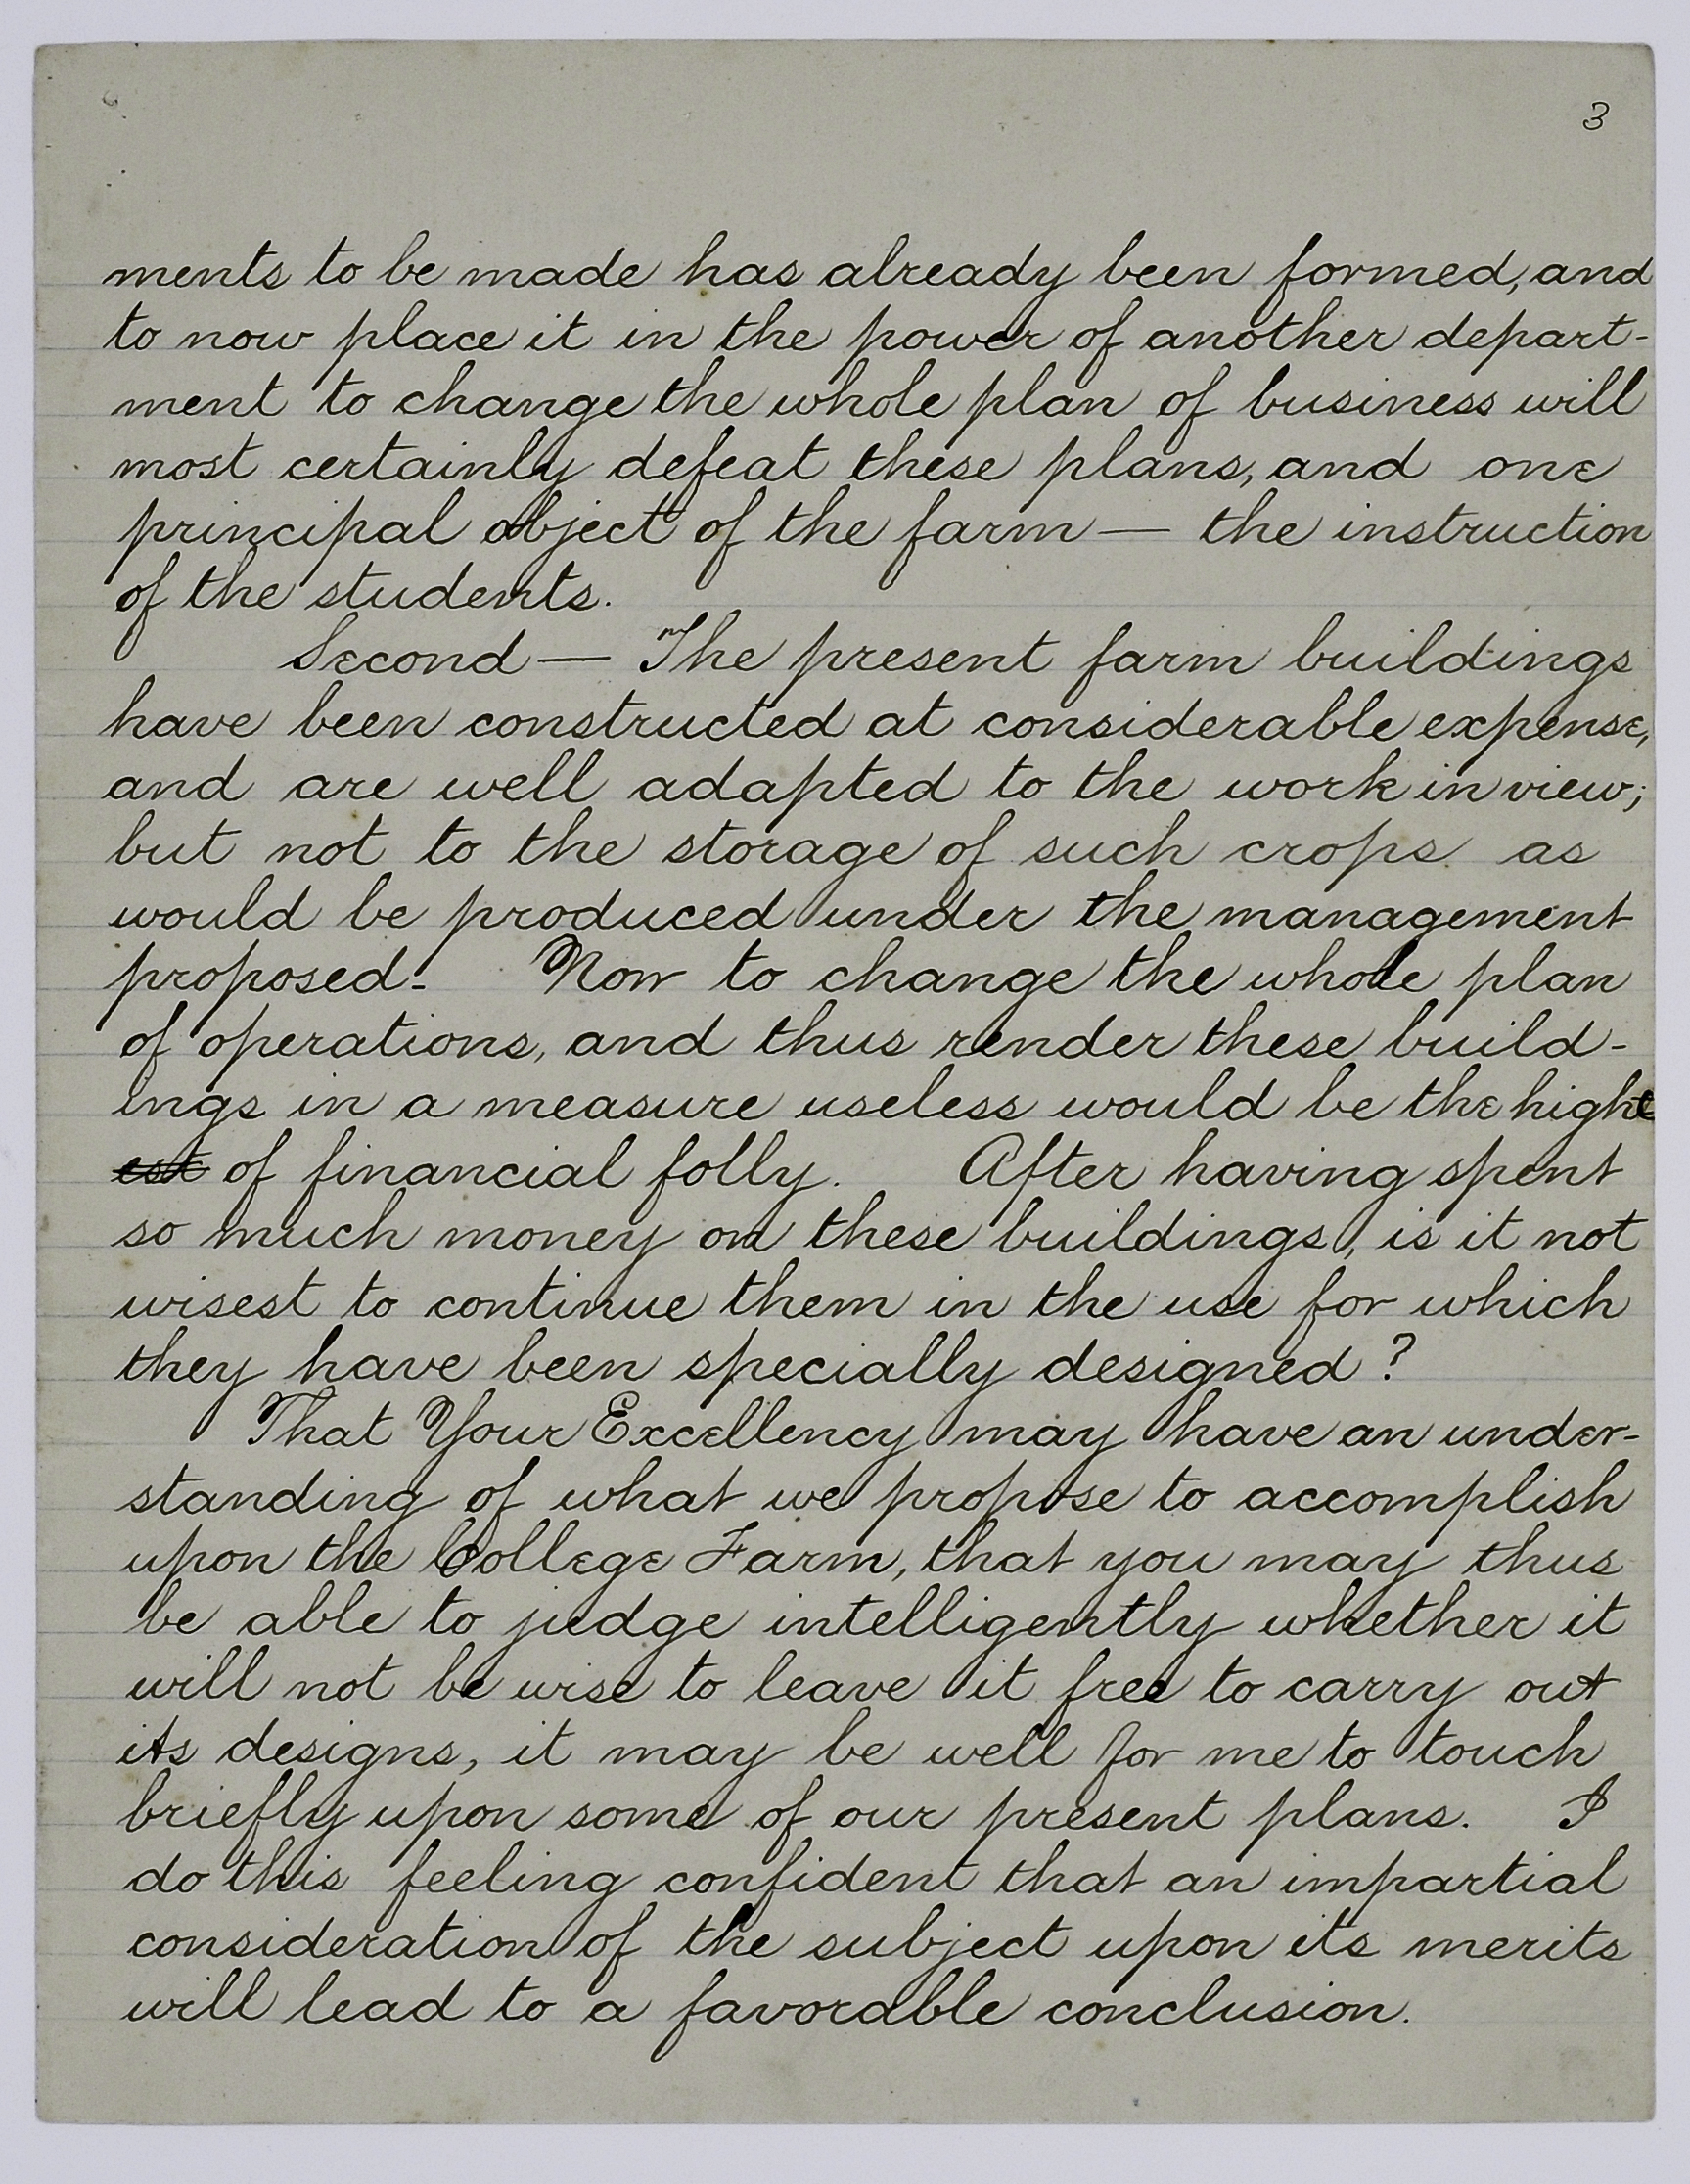 3
ments to be made has already been formed, and
to now place it in the power of another depart-
ment to change the whole plan of business will
most certainly defeat these plans, and one
principal object of the farm — the instruction
of the students.
Second — The present farm buildings
have been constructed at considerable expense,
and are well adapted to the work in view;
but not to the storage of such crops as
would be produced under the management
proposed. Now to change the whole plan
of operations, and thus render these build-
ings in a measure useless would be the hight
est of financial folly. After having spent
so much money on these buildings, is it not
wisest to continue them in the use for which
they have been specially designed?
That Your Excellency may have an under-
standing of what we propose to accomplish
upon the College Farm, that you may thus
be able to judge intelligently whether it
will not be wise to leave it free to carry out
its designs, it may be well for me to touch
briefly upon some of our present plans. I
do this feeling confident that an impartial
consideration of the subject upon its merits
will lead to a favorable conclusion.